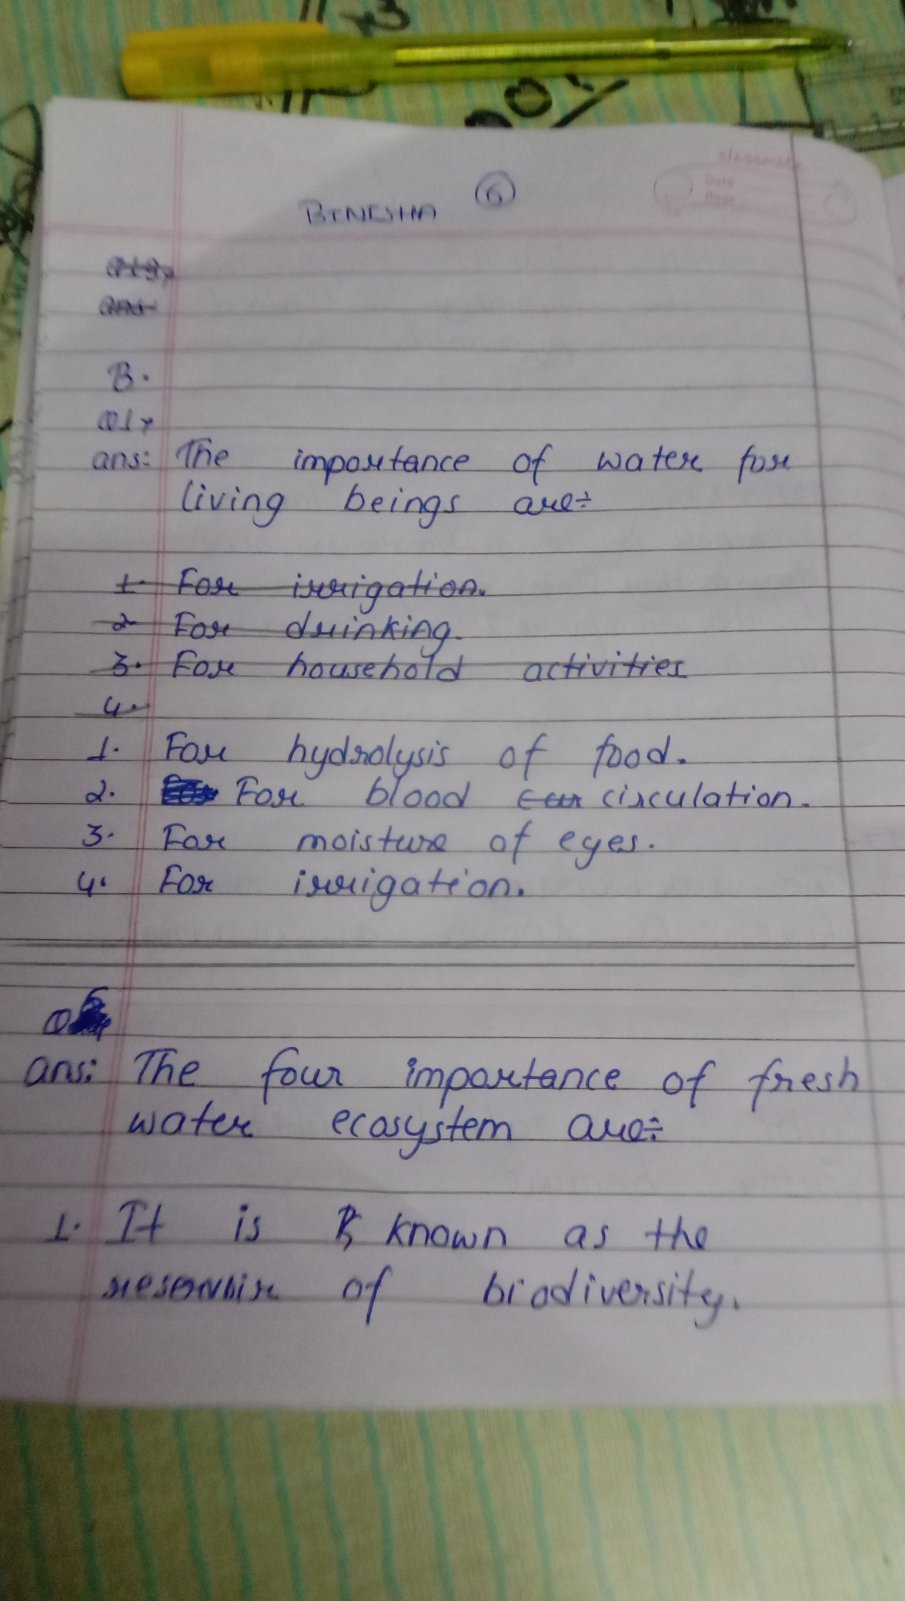 BINISHA 6
Q19,
ans
B.
Q1,
ans: The importance of water for
living beings are:
1. For irrigation.
2 For drinking.
3. For household activities
4.
1. For hydrolysis of food.
2. For blood circulation.
3. For moisture of eyes.
4. For irrigation.
ans: The four importance of fresh
water ecosystem are:
1. It is known as the
reservoir of biodiversity.